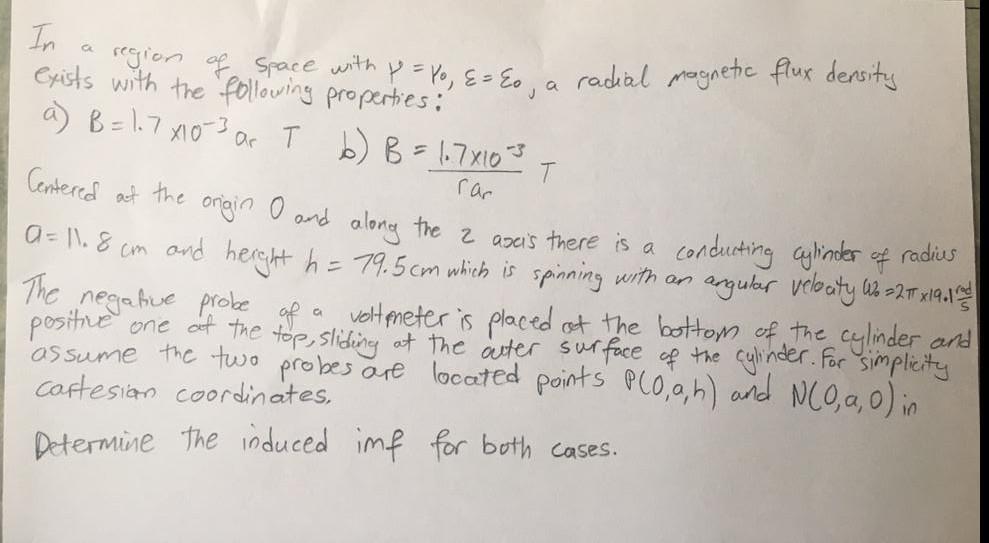 In a region of space with μ = μ₀, ε = ε₀, a radial magnetic flux density
exists with the following properties:
a) B = 1.7 x10⁻³ ar T b) B = 1.7x10⁻³ / rar T
Centered at the origin O and along the z axis there is a conducting cylinder of radius
a = 11.8 cm and height h = 79.5 cm which is spinning with an angular velocity ω₀ = 2π x19.1 rad/s
The negative probe of a voltmeter is placed at the bottom of the cylinder and
positive one at the top, sliding at the outer surface of the cylinder. For simplicity
assume the two probes are located points P(0,a,h) and N(0,a,0) in
cartesian coordinates.
Determine the induced imf for both cases.